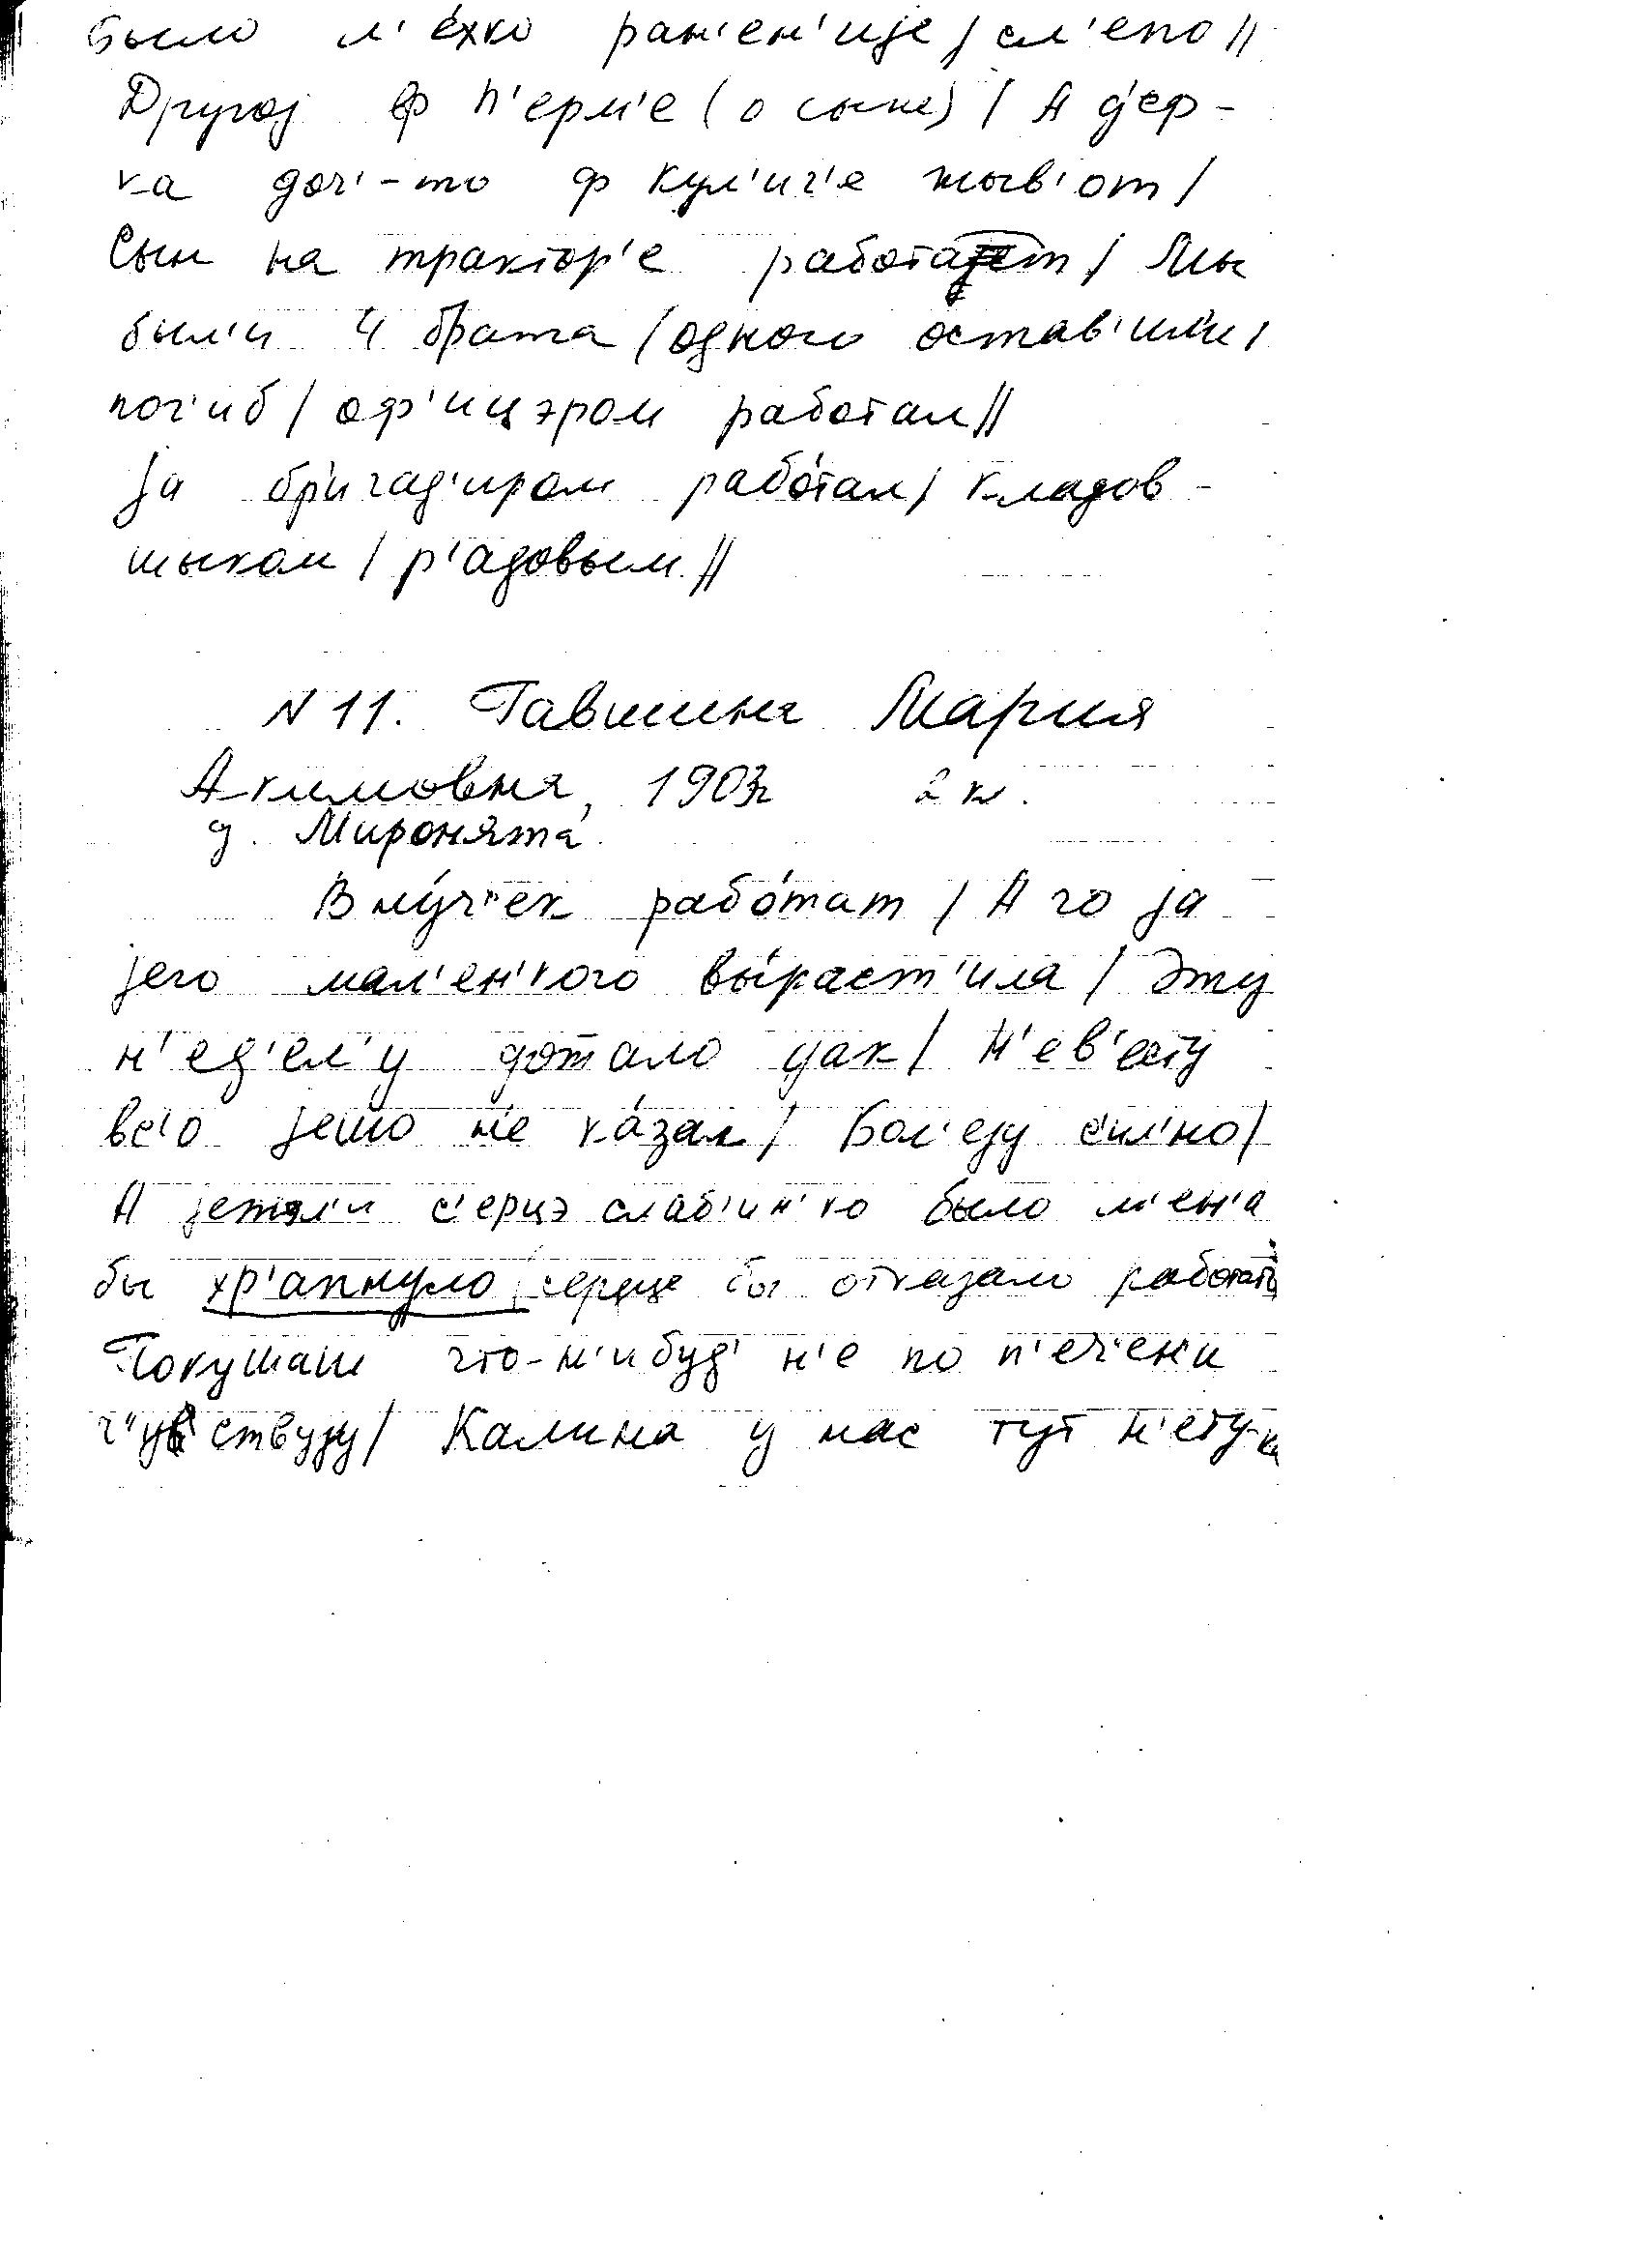 было л'е́хко ран'ен'иjе / сл'епо //
Другоj ф П'ерм'е (о сыне) / А д'еф-
ка доч'-то ф Кул'иг'е жыв'от /
Сын на трактор'е работат / Мы
был'и 4 брата / одного остав'ил'и /
пог'иб / оф'ицэром работал //
Jа бр'игад'иром рабо́тал / кладов-
шыком / р'адовым //
N 11. Гавшина Мария
Акимовна, 1903г 2 кл.
д. Миронята
Вну́ч'ек рабо́тат / А то jа
jего мал'ен'кого вы́раст'ила / Эту
н'ед'ел'у дотало дак / Н'ев'есту
вс'о jешо н'е ка́зал / Бол'еjу с'ил'но /
А jежл'и с'ерцэ слаб'ин'ко было м'ен'а
бы хр'апнуло, серце бы отказало работать
Покушаш что-н'ибуд' н'е по п'еч'ен'и
ч'уствуjу / Калина у нас тут н'ету-ка